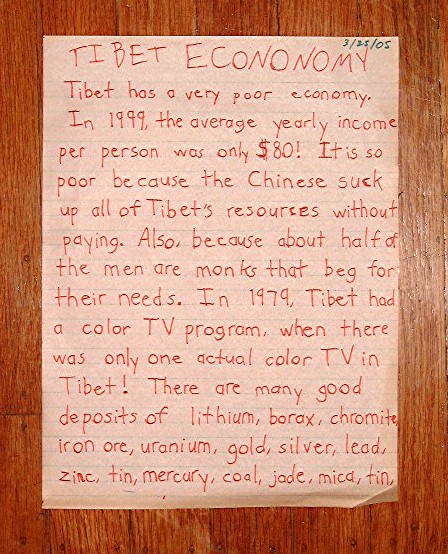 3/25/05
TIBET ECONONOMY
Tibet has a very poor economy.
In 1999, the average yearly income
per person was only $80! It is so
poor because the Chinese suck
up all of Tibet's resources without
paying. Also, because about half of
the men are monks that beg for
their needs. In 1979, Tibet had
a color TV program, when there
was only one actual color TV in
Tibet! There are many good
deposits of lithium, borax, chromite,
iron ore, uranium, gold, silver, lead,
zinc, tin, mercury, coal, jade, mica, tin,